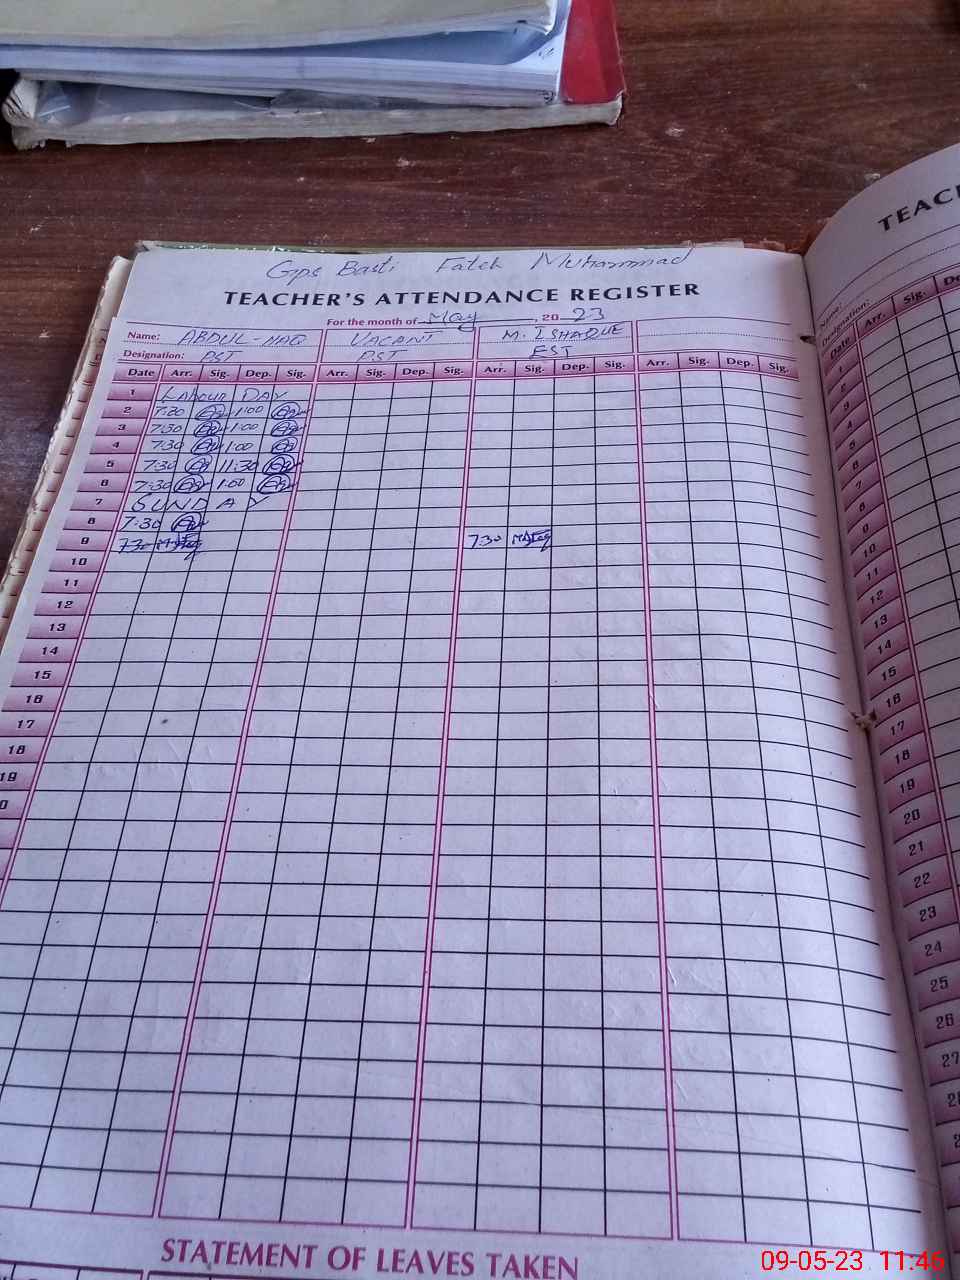 Gps Basti Fateh Muhammad
TEACHER'S ATTENDANCE REGISTER
For the month of May, 2023
Name: ABDUL-HAQ VACANT M. ISHAQUE
Designation: PST PST EST
Date Arr. Sig. Dep. Sig. Arr. Sig. Dep. Sig. Arr. Sig. Dep. Sig. Arr. Sig. Dep. Sig.
1 Labour DAY
2 7:30 1:00
3 7:30 1:00
4 7:30 1:00
5 7:30 11:30
6 7:30 1:00
7 SUNDAY
8 7:30
9 7:30 7:30
10
11
12
13
14
15
16
17
18
19
0
STATEMENT OF LEAVES TAKEN
TEAC
Name:
Designation:
Date Arr. Sig. De
1
2
3
4
5
6
7
8
9
10
11
12
13
14
15
16
17
18
19
20
21
22
23
24
25
26
27
2
2
09-05-23 11:46